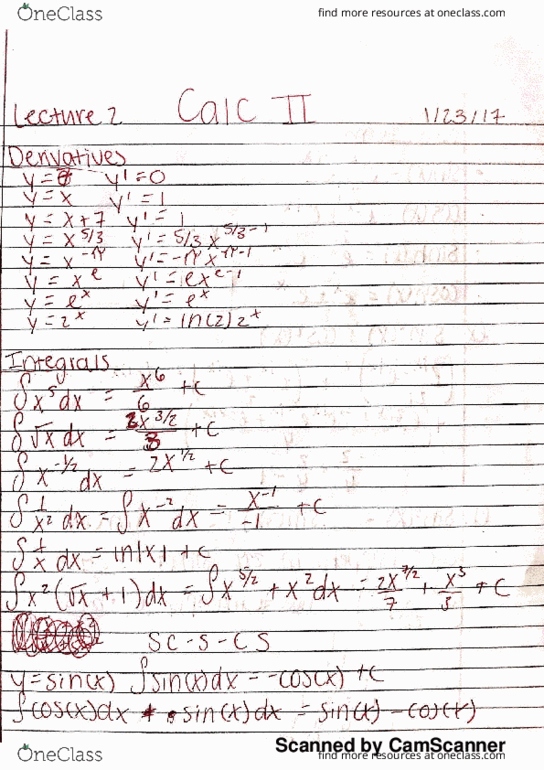 OneClass find more resources at oneclass.com
Lecture 2 Calc II 1/23/17
Derivatives
y = y' = 0
y = x y' = 1
y = x + 7 y' = 1
y = x^5/3 y' = 5/3 x^5/3 - 1
y = x^-π y' = -πx^-π-1
y = x^e y' = ex^e-1
y = e^x y' = e^x
y = 2^x y' = ln(2) 2^x
Integrals
∫ x^5 dx = x^6/6 + C
∫ √x dx = 2x^3/2/3 + C
∫ x^-1/2 dx = 2x^1/2 + C
∫ 1/x^2 dx = ∫ x^-2 dx = x^-1/-1 + C
∫ 1/x dx = ln|x| + C
∫ x^2(√x + 1) dx = ∫ x^5/2 + x^2 dx = 2x^7/2/7 + x^3/3 + C
SC-S-CS
y = sin(x) ∫ sin(x) dx = -cos(x) + C
∫ cos(x) dx + sin(x) dx = sin(x) - cos(x)
Scanned by CamScanner
OneClass find more resources at oneclass.com